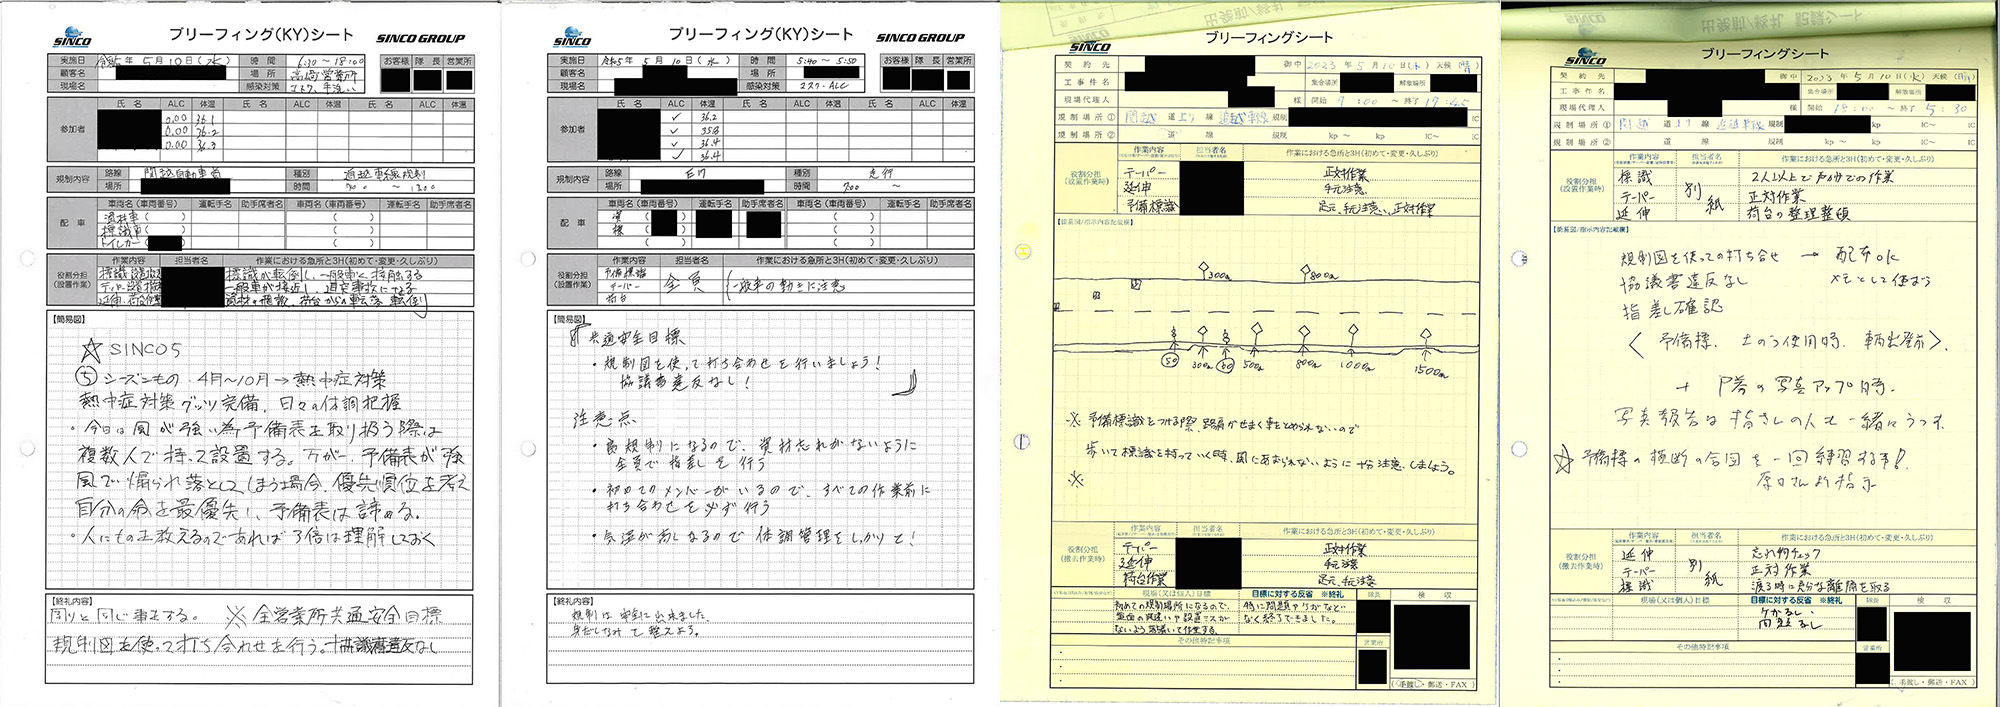 SINCO
ブリーフィング(KY)シート
SINCO GROUP
実施日 令和5年 5月10日(水) 時間 6:30~18:00 お客様 隊長 営業所
顧客名 場所 高崎営業所
現場名 感染対策 マスク、手洗い
氏名 ALC 体温 氏名 ALC 体温 氏名 ALC 体温
参加者
0.00 36.1
0.00 36.2
0.00 36.3
規制内容 路線 関越自動車道 種別 追越車線規制
場所 時間
配車 車両名(車両番号) 運転手名 助手席者名 車両名(車両番号) 運転手名 助手席者名
標識車( )
トイレカー( )
作業内容 担当者名 作業における急所と3H(初めて・変更・久しぶり)
役割分担
(設置作業)
標識が転倒し、一般車と接触する
一般車が接近し、追突事故になる
【簡易図】
☆ SINCO5
⑤ シーズンもの 4月~10月→熱中症対策
熱中症対策グッツ完備、日々の体調把握
・今日は風が強い為予備表を取り扱う際は
複数人で持って設置する。万が一、予備表が強
風で煽られ落としてしまう場合、優先順位を考え
自分の命を最優先し、予備表は諦める。
・人にものを教えるのであれば3倍は理解しておく
【終礼内容】
周りと同じ事をする。 ※全営業所共通安全目標
規制図を使って打ち合わせを行う。協議書違反なし
SINCO
ブリーフィング(KY)シート
SINCO GROUP
実施日 令和5年 5月10日(水) 時間 5:40~5:50 お客様 隊長 営業所
顧客名 場所
現場名 感染対策 マスク・ALC
氏名 ALC 体温 氏名 ALC 体温 氏名 ALC 体温
参加者
✓ 36.2
✓ 35.8
✓ 36.4
✓ 36.4
規制内容 路線 E17 種別 走行
場所 時間 7:00 ~
配車 車両名(車両番号) 運転手名 助手席者名 車両名(車両番号) 運転手名 助手席者名
標( )
作業内容 担当者名 作業における急所と3H(初めて・変更・久しぶり)
役割分担
(設置作業)
予備標識
テーパー 全員 一般車の動きに注意
荷台
【簡易図】
共通安全目標
・規制図を使って打ち合わせを行いましょう!
協議書違反なし!
注意点
・長規制になるので、資材忘れがないように
全員で指差しを行う
・初めてのメンバーがいるので、すべての作業前に
打ち合わせを必ず行う
・気温が高くなるので体調管理をしっかりと!
【終礼内容】
規制は安全に出来ました。
身だしなみて整えよう。
SINCO
ブリーフィングシート
契約先 御中 2023年5月10日(水) 天候(晴)
工事件名 集合場所 解散場所
現場代理人 様 開始 7:00 ~ 終了 17:45
規制場所① 関越道 上り線 追越車線 規制 IC
規制場所② 道 線 規制 kp ~ kp IC~ IC
作業内容 担当者名 作業における急所と3H(初めて・変更・久しぶり)
役割分担
(設置作業時)
テーパー 正対作業
延伸 手元注意
予備標識 足元、手元注意、正対作業
【簡易図/指示内容記載欄】
300m 800m
50 300m 60 500m 800m 1000m 1500m
※ 予備標識をつける際、路肩がせまく車をとめられないので
歩いて標識を持っていく時、風にあおられないように十分注意しましょう。
※
作業内容 担当者名 作業における急所と3H(初めて・変更・久しぶり)
役割分担
(撤去作業時)
テーパー 正対作業
延伸 手元注意
荷台作業 足元、手元注意
現場(又は個人)目標 目標に対する反省 ※終礼 隊長 検収
初めての規制場所になるので、 特に問題やケガなど
図面の見違いや設置ミスが なく終了できました。
ないよう落着いて作業する。
その他特記事項 営業所
(手渡し・郵送・FAX)
SINCO
ブリーフィングシート
契約先 御中 2023年5月10日(水) 天候(晴)
工事件名 集合場所 解散場所
現場代理人 様 開始 18:00 ~ 終了 5:30
規制場所① 関越道 上り線 追越車線 規制 kp IC~ IC
規制場所② 道 線 規制 kp ~ kp IC~ IC
作業内容 担当者名 作業における急所と3H(初めて・変更・久しぶり)
役割分担
(設置作業時)
標識 2人以上で声かけでの作業
テーパー 別紙 正対作業
延伸 荷台の整理整頓
【簡易図/指示内容記載欄】
規制図を使っての打ち合せ → 配布OK
協議書違反なし メモとして使おう
指差し確認
〈予備標、土のう使用時、車両出発前〉
写真報告は指さしの人も一緒にうつす
☆ 予備標の横断の合図を一回練習する事!
作業内容 担当者名 作業における急所と3H(初めて・変更・久しぶり)
役割分担
(撤去作業時)
延伸 忘れ物チェック
テーパー 別紙 正対作業
標識 渡る時に充分な離隔を取る
現場(又は個人)目標 目標に対する反省 ※終礼 隊長 検収
ケガなし
問題なし
その他特記事項 営業所
(手渡し・郵送・FAX)